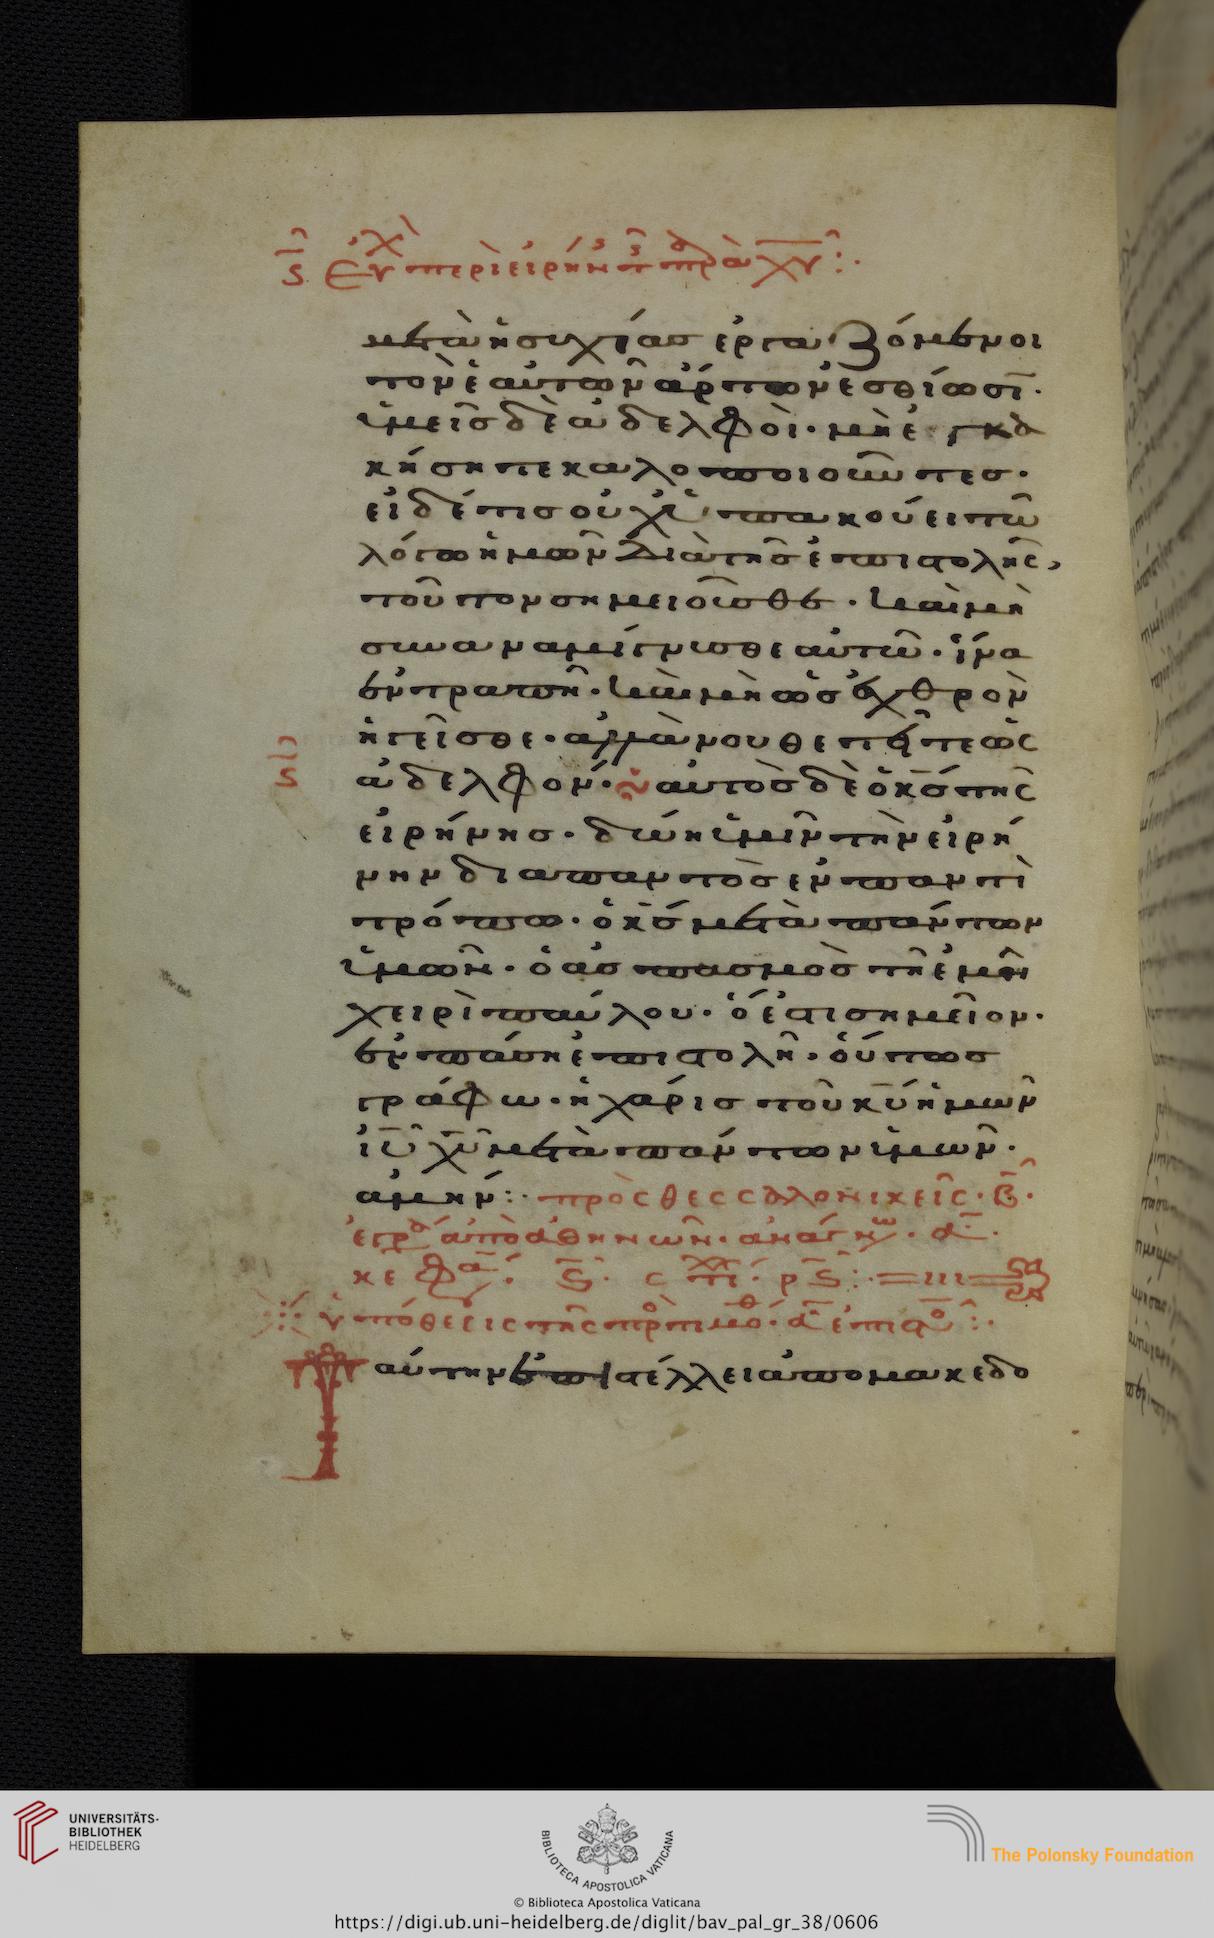 ϛ Εὐχ περὶ εἰρήν π πρὰ χυ:·
μετὰ ἡσυχίας ἐργαζόμενοι
τὸν ἑαυτῶν ἄρτον ἐσθίωσι·
ὑμεῖς δὲ ἀδελφοὶ· μὴ ἐγκα
κήσητε καλοποιοῦντες·
εἰ δέ τις οὐχ ὑπακούει τῶ
λόγω ἡμῶν διὰ τῆς ἐπιστολῆς,
τοῦτον σημειοῦσθε· καὶ μὴ
συναναμίγνυσθε αὐτῶ· ἵνα
ἐντραπῆ· καὶ μὴ ὡς ἐχθρὸν
ἡγεῖσθε· ἀλλὰ νουθετεῖτε ὡς
ϛ ἀδελφόν· αὐτὸς δὲ ὁ κς τῆς
εἰρήνης· δώη ὑμῖν τὴν εἰρή
νην διαπαντὸς ἐν παντὶ
τρόπω· ὁ κς μετὰ πάντων
ὑμῶν· ὁ ἀσπασμὸς τῆ ἐμῆ
χειρὶ παύλου· ὅ ἐστι σημεῖον·
ἐν πάση ἐπιστολῆ· οὕτως
γράφω· ἡ χάρις τοῦ κυ ἡμῶν
ιυ χυ μετὰ πάντων ὑμῶν·
ἀμήν:· πρὸς θεσσαλονικεῖς· β·
ἐγρά ἀπὸ ἀθηνῶν· ἀναγνω· α·
κεφα· ϛ· στι· ρϛ:·
ὑπόθεσις τῆς πρ τιμοθ· α ἐπιστο:·
Ταύτην ἐπιστέλλει ἀπὸ μακεδο
UNIVERSITÄTS-
BIBLIOTHEK
HEIDELBERG
BIBLIOTECA APOSTOLICA VATICANA
© Biblioteca Apostolica Vaticana
The Polonsky Foundation
https://digi.ub.uni-heidelberg.de/diglit/bav_pal_gr_38/0606